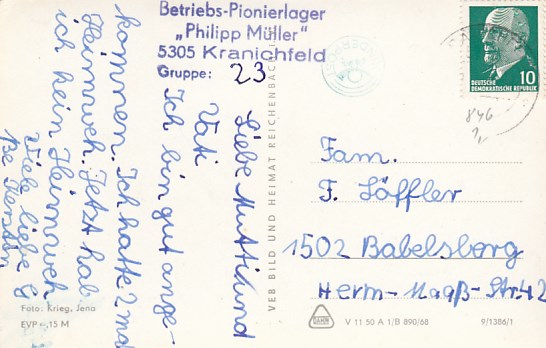 Betriebs-Pionierlager
„Philipp Müller“
5305 Kranichfeld
Gruppe: 23
Liebe Mutti und
Vati
Ich bin gut ange-
kommen. Ich hatte 2 mal
Heimweh. Jetzt hab
ich kein Heimweh
Viele liebe G
Kerstin
Foto: Krieg, Jena
EVP –,15 M
VEB BILD UND HEIMAT REICHENBACH
DEUTSCHE
DEMOKRATISCHE REPUBLIK
10
846
Fam.
F. Löffler
1502 Babelsberg
Herm-Maaß-Str. 42
V 11 50 A 1/B 890/68
9/1386/1